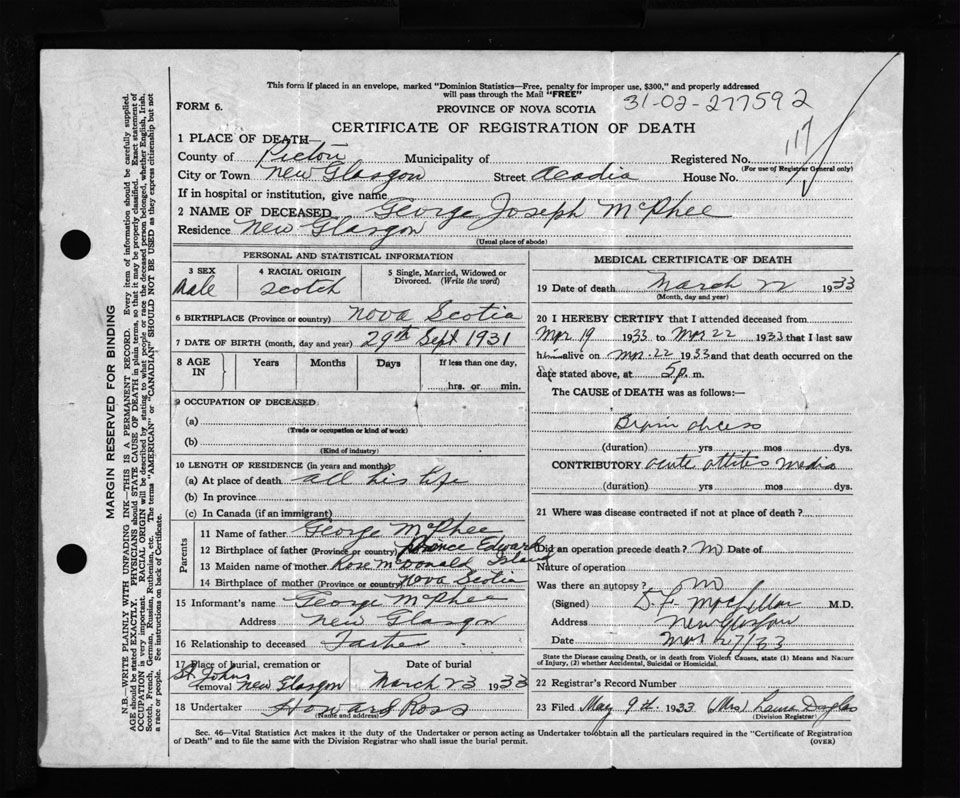 This form if placed in an envelope, marked "Dominion Statistics—Free, penalty for improper use, $300," and properly addressed
will pass through the Mail "FREE"
FORM 6.
PROVINCE OF NOVA SCOTIA
31-02-277592
CERTIFICATE OF REGISTRATION OF DEATH
117
1 PLACE OF DEATH—
County of Pictou Municipality of Registered No.
(For use of Registrar General only)
City or Town New Glasgow Street Acadia House No.
If in hospital or institution, give name
2 NAME OF DECEASED George Joseph McPhee
Residence New Glasgow
(Usual place of abode)
PERSONAL AND STATISTICAL INFORMATION
3 SEX 4 RACIAL ORIGIN 5 Single, Married, Widowed or Divorced. (Write the word)
Male Scotch
6 BIRTHPLACE (Province or country) Nova Scotia
7 DATE OF BIRTH (month, day and year) 29th Sept 1931
8 AGE IN Years Months Days If less than one day,
hrs. or min.
9 OCCUPATION OF DECEASED
(a)
(Trade or occupation or kind of work)
(b)
(Kind of industry)
10 LENGTH OF RESIDENCE (in years and months)
(a) At place of death all his life
(b) In province
(c) In Canada (if an immigrant)
Parents
11 Name of father George McPhee
12 Birthplace of father (Province or country) Prince Edward Island
13 Maiden name of mother Rose McDonald
14 Birthplace of mother (Province or country) Nova Scotia
15 Informant's name George McPhee
Address New Glasgow
16 Relationship to deceased Father
17 Place of burial, cremation or removal St Johns New Glasgow
Date of burial March 23 1933
18 Undertaker Howard Ross
(Name and address)
MEDICAL CERTIFICATE OF DEATH
19 Date of death March 22 1933
(Month, day and year)
20 I HEREBY CERTIFY that I attended deceased from
Mar 19 1933 to Mar 22 1933 that I last saw
him alive on Mar. 22 1933 and that death occurred on the
date stated above, at 5 p. m.
The CAUSE of DEATH was as follows:
Brain abcess
(duration) yrs mos dys.
CONTRIBUTORY acute ottites media
(duration) yrs mos dys.
21 Where was disease contracted if not at place of death?
Did an operation precede death? no Date of
Nature of operation
Was there an autopsy? no
(Signed) D. F. McLellan M.D.
Address New Glasgow
Date Mar 27/33
State the Disease causing Death, or in death from Violent Causes, state (1) Means and Nature
of Injury, (2) whether Accidental, Suicidal or Homicidal.
22 Registrar's Record Number
23 Filed May 9th. 1933 (Mrs) Laura Douglas
(Division Registrar)
Sec. 46—Vital Statistics Act makes it the duty of the Undertaker or person acting as Undertaker to obtain all the particulars required in the "Certificate of Registration
of Death" and to file the same with the Division Registrar who shall issue the burial permit.
(OVER)
MARGIN RESERVED FOR BINDING
N.B.—WRITE PLAINLY WITH UNFADING INK—THIS IS A PERMANENT RECORD. Every item of information should be carefully supplied.
AGE should be stated EXACTLY. PHYSICIANS should STATE CAUSE OF DEATH in plain terms, so that it may be properly classified. Exact statement of
OCCUPATION is very important. RACIAL ORIGIN will be described by stating to what people or race the deceased person belonged, whether English, Irish,
Scotch, French, German, Russian, Ruthenian, etc. The terms "AMERICAN" or "CANADIAN" SHOULD NOT BE USED as they express citizenship but not
a race or people. See instructions on back of Certificate.